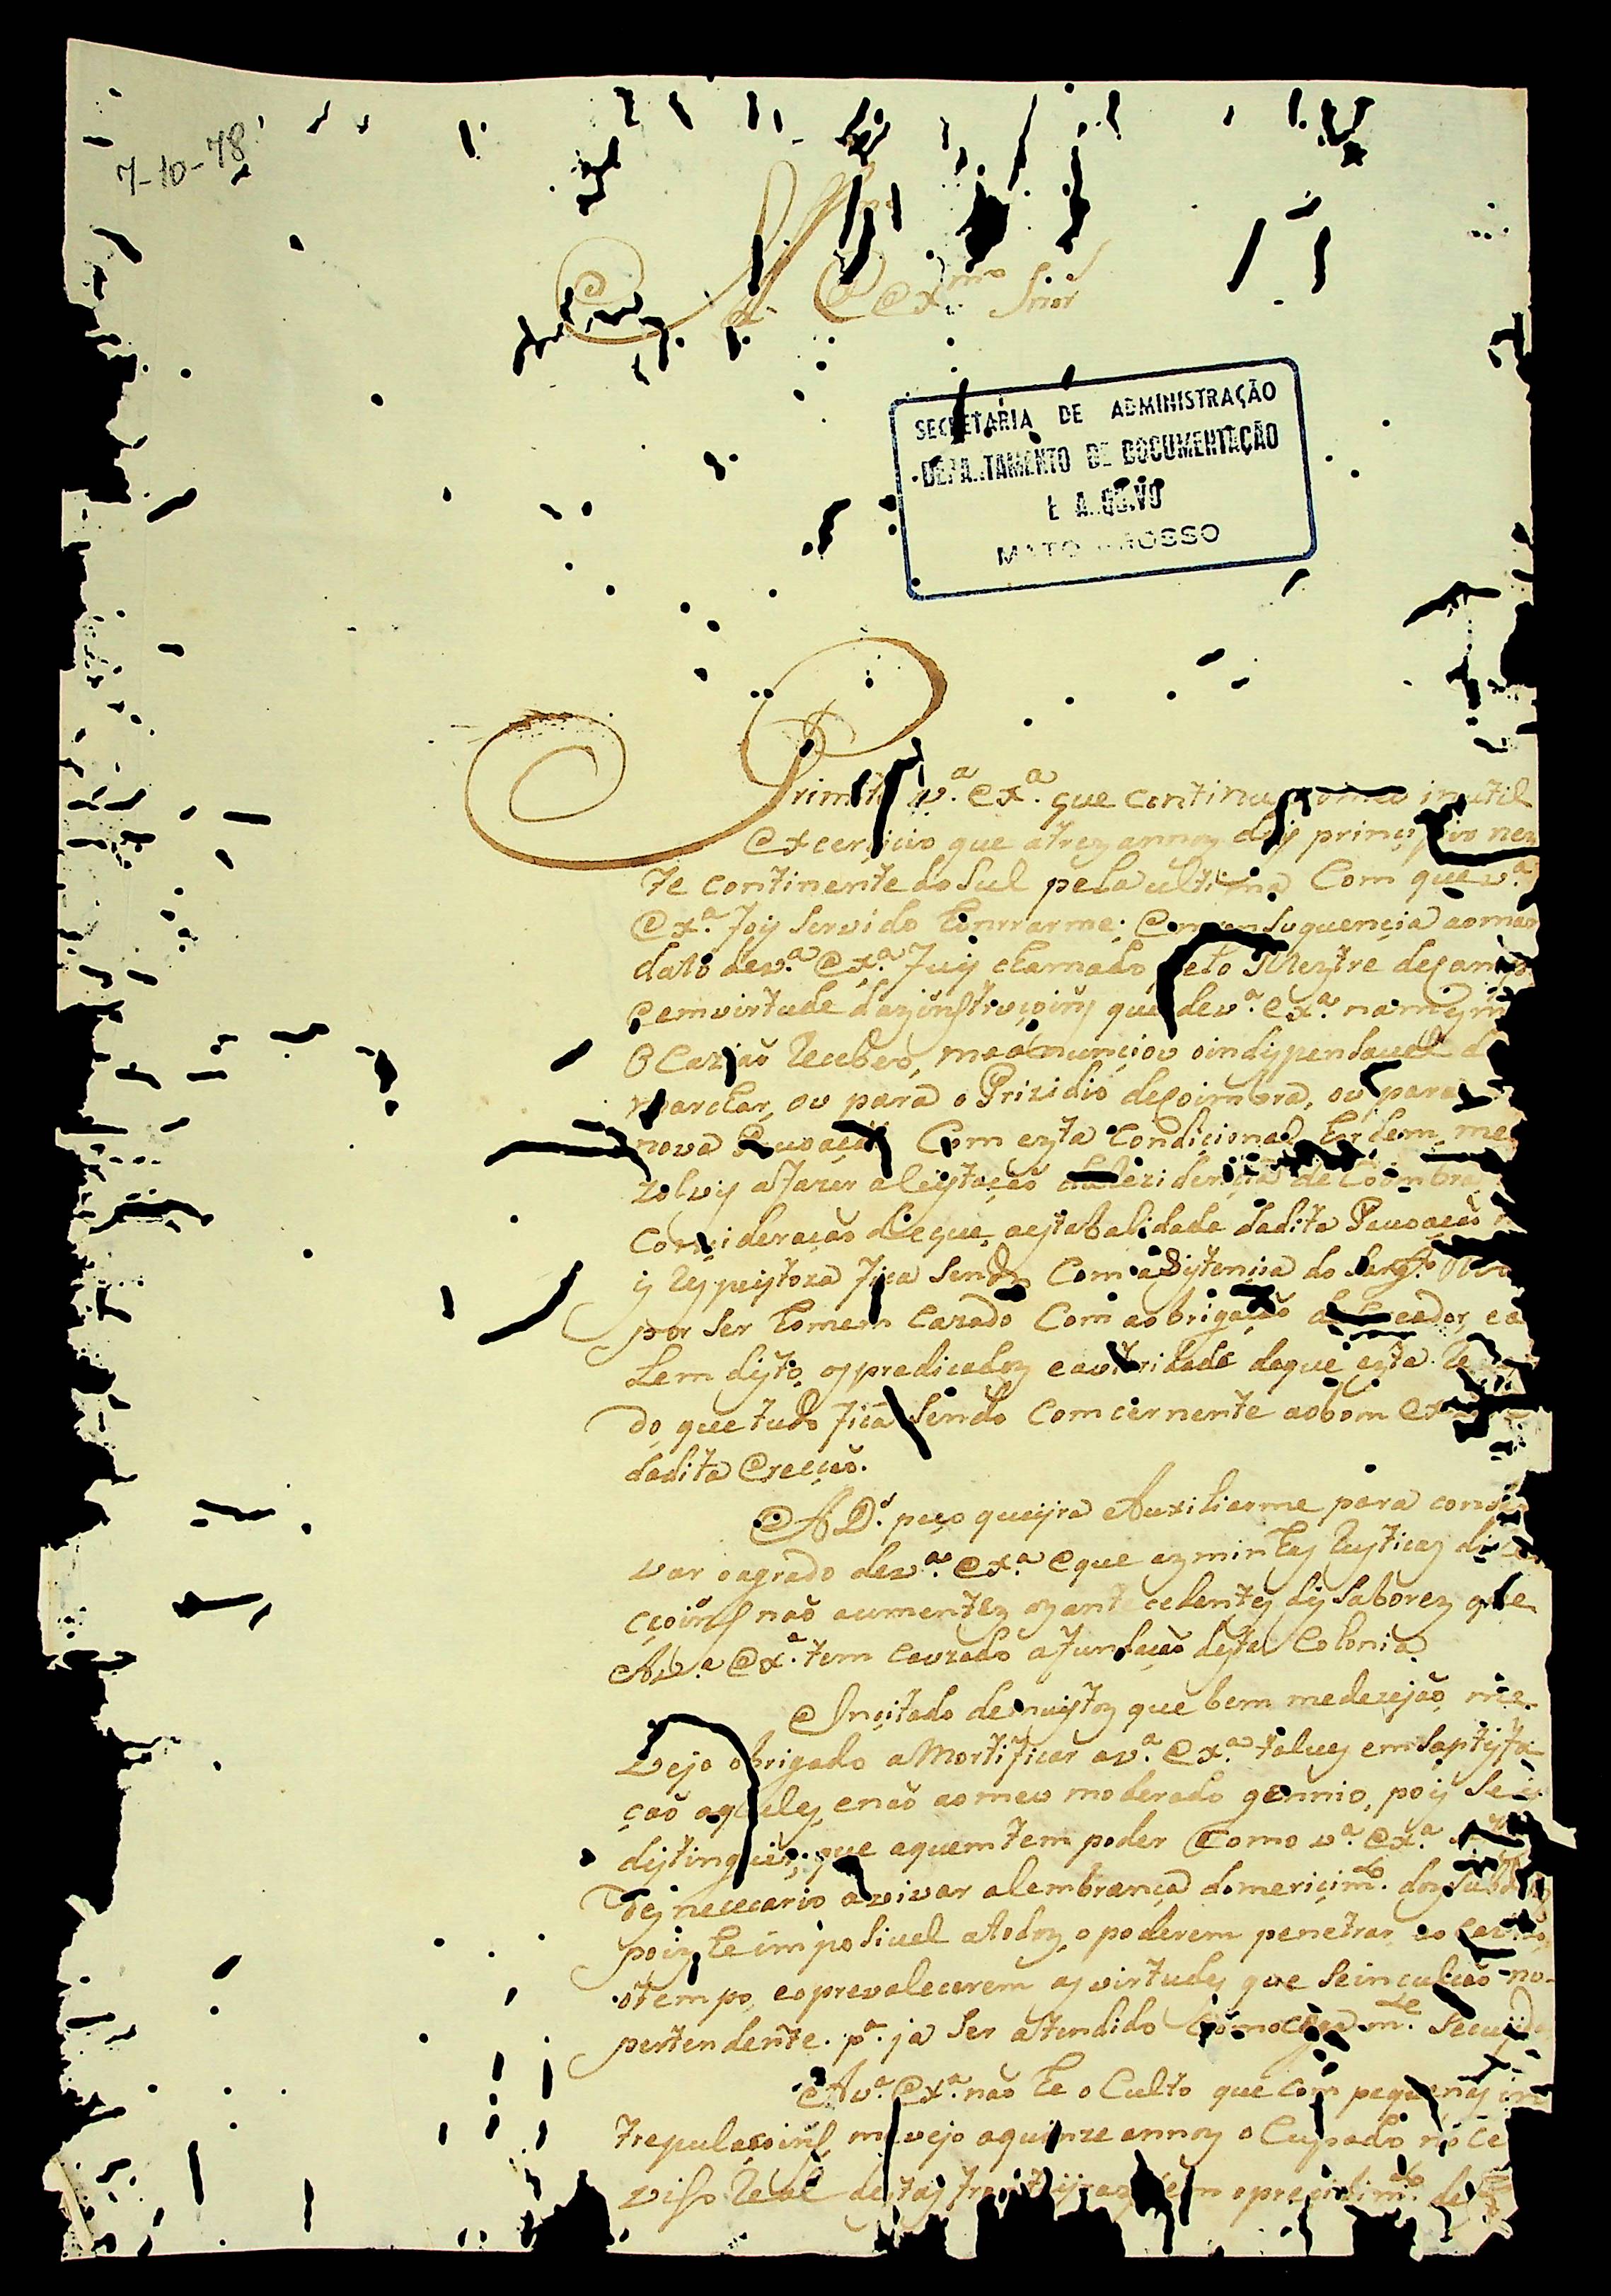 7-10-78
Ill.mo
e Ex.mo Snor
SECRETARIA DE ADMINISTRAÇÃO
DEPARTAMENTO DE DOCUMENTAÇÃO
E ARQUIVO
MATO GROSSO
v.a Ex.a que continua o meu inutil
Excerçicio que a trez annoz dey prinçipio nez
te continente do Sul pela ultima Com que v.a
Ex.a foy Servido honrrarme; Em consuquençia ao man
dato de v.a Ex.a fuy chamado pelo Meztre de campo
e em virtude daz instruçoinz que de v.a Ex.a na mezm
O Cazião Recebeo, me anunçiou o indispensavel d
marchar, ou para o Prizidio de Coimbra, ou para
nova Puvação Com ezta Condicional hordem, me
zolvy a fazer a leytação da Rezidençia de Coimbra
Consideração de que, a estabalidade da dita Puvação
y Respeytoza fica Sendo Com a adystençia do Sarg.to
por Ser homem Cazado Com a obrigação de Creador, e a
Lem dysto, os predicadoz e autoridade de que ezta Re
do, que tudo fica Sendo Comcernente ao bom Ex
da dita Ereção.
A D.s peço queyra Auxiliarme para conser
var o agrado de v.a Ex.a e que az minhaz Rusticaz di
çoins não aumentez oz antecedentez disSaborez que
A v.a Ex.a tem Cauzado a fundação desta Colonia
Inçitado de muytoz que bem me dezejão, me
Vejo obrigado a Mortificar a v.a Ex.a talvez em Saptisfa
ção aqueles, e não ao meu moderado gennio, pois Se y
distinguir, que a quem tem poder Como v.a Ex.a
fez nececario avivar a lembrança do mericim.to doz Subd
poiz he imposivel a todoz, o poderem penetrar
o tempo, e o prevalecerem as virtudes que Se inculcão no
pertendente. p.a ja Ser atendido
A v.a Ex.a não he oculto que com pequenas in
trepulaçoins me vejo a quinze annoz oCupado no Ce
viso Real destas fronteyraz